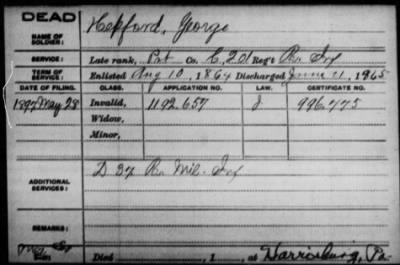 DEAD
NAME OF SOLDIER: Hefford, George
SERVICE: Late rank, Pvt Co. C, 2d Reg't Pa Inf
TERM OF SERVICE: Enlisted Aug 10, 1864 Discharged June 21, 1865
DATE OF FILING. CLASS. APPLICATION NO. LAW. CERTIFICATE NO.
1897 May 28 Invalid, 1192.657 J 996.475
Widow,
Minor,
ADDITIONAL SERVICES: D 37 Pa Mil. Inf
REMARKS:
Died , 1 , at Harrisburg, Pa